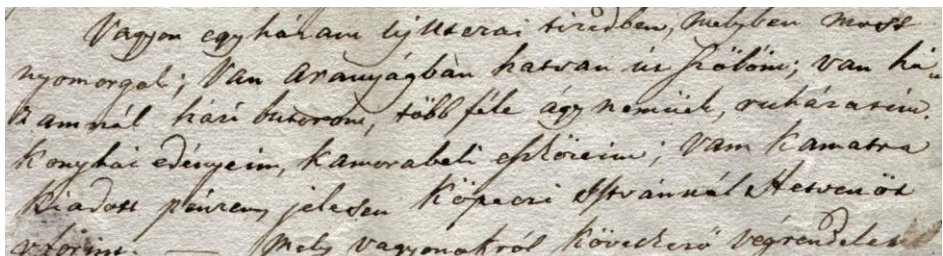 Vagyon egy házam újUtszai tizedben, melyben most
nyomorgok; Van Aranyágban hatvan út szőlőm; van há-
zamnál házi butorom, több féle ágy nemüek, ruházasim
Konyhai edényeim, kamorabeli eszközeim; Vam Kamatra
Kiadott pénzem, jelesen Köpeczi Istvánnál Hetvenöt
vforint. — Mely vagyonokról következő végrendelet